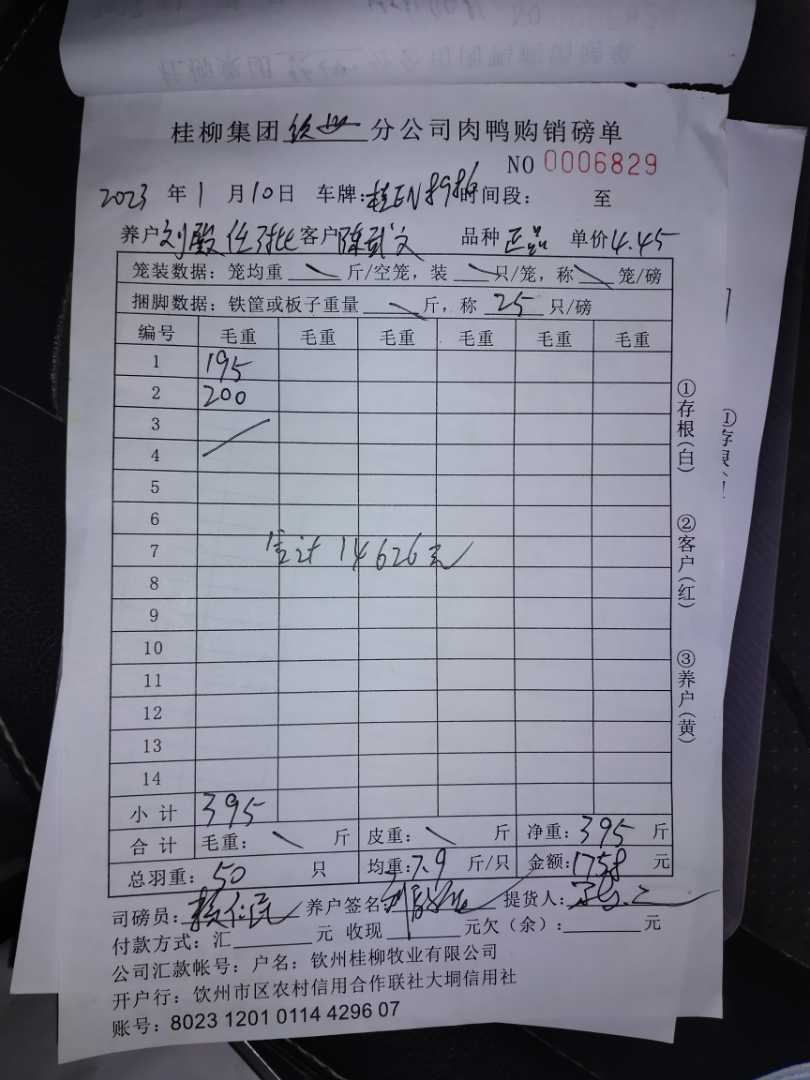 桂柳集团 分公司肉鸭购销磅单
NO 0006829
2023 年 1 月 10 日 车牌:桂EN8986 时间段: 至
养户 刘殿 客户 陈武文 品种 正品 单价 4.45
笼装数据: 笼均重 斤/空笼, 装 只/笼, 称 笼/磅
捆脚数据: 铁筐或板子重量 斤, 称 25 只/磅
编号 毛重 毛重 毛重 毛重 毛重 毛重
1 195
2 200
3
4
5
6
7 合计 14626元
8
9
10
11
12
13
14
小计 395
合计 毛重: 斤 皮重: 斤 净重: 395 斤
总羽重: 50 只 均重: 7.9 斤/只 金额: 1758 元
司磅员: 养户签名 提货人:
付款方式: 汇 元 收现 元欠(余): 元
公司汇款帐号: 户名: 钦州桂柳牧业有限公司
开户行: 钦州市区农村信用合作联社大垌信用社
账号: 8023 1201 0114 4296 07
①存根(白)
②客户(红)
③养户(黄)